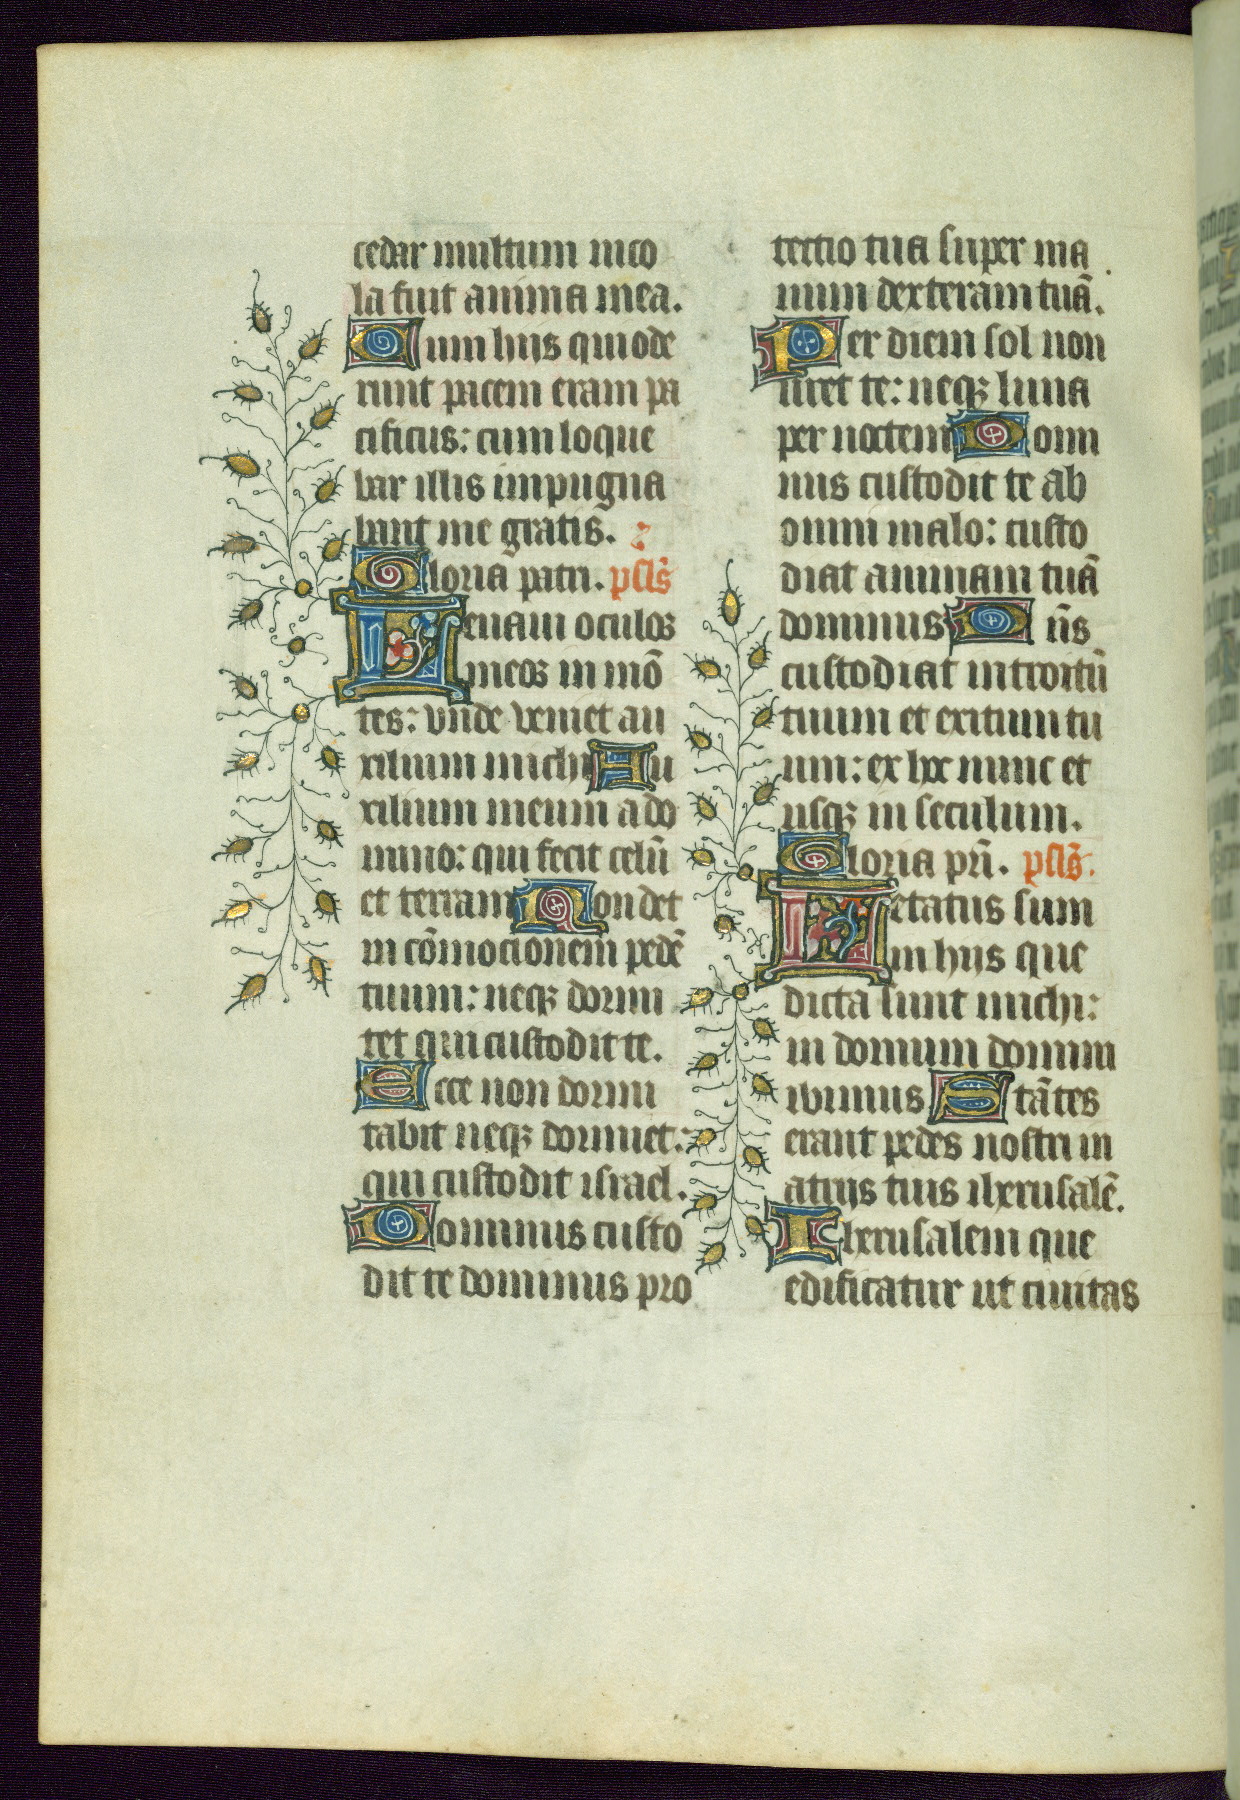 cedar multum inco
la fuit anima mea.
Cum hijs qui ode
runt pacem eram pa
cificus: cum loque
bar illis impugna
bant me gratis.
Gloria patri. psal̄s
Leuaui oculos
meos in mō
tes: vnde veniet au
xilium michi Au
xilium meum a do
mino: qui fecit celū
et terram Non det
in cōmocionem pedē
tuum: neqꝫ dormi
tet qui custodit te.
Ecce non dormi
tabit neqꝫ dormiet:
qui custodit israel.
Dominus custo
dit te dominus pro
tectio tua super ma
num dexteram tuā.
Per diem sol non
uret te: neqꝫ luna
per noctem Domi
nus custodit te ab
omni malo: custo
diat animam tuā
dominus Dn̄s
custodiat introitū
tuum et exitum tu
um: ex hoc nunc et
usqꝫ in seculum.
Gloria pr̄i. psal̄s.
Letatus sum
in hijs que
dicta sunt michi:
in domum domini
ibimus Stātes
erant pedes nostri in
atrijs tuis iherusalē.
Iherusalem que
edificatur ut ciuitas